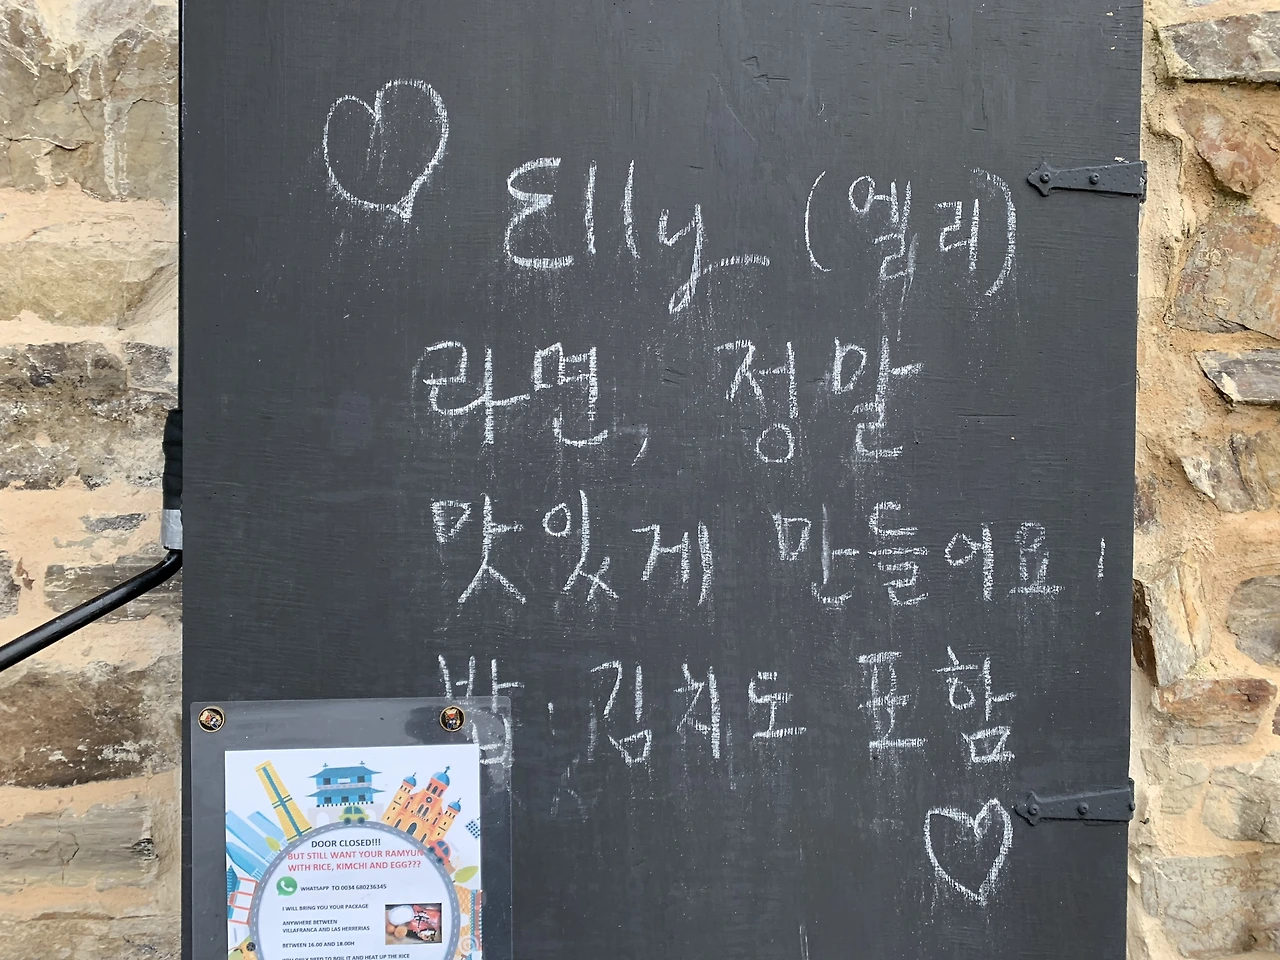 Elly (엘리)
라면, 정말
맛있게 만들어요!
밥, 김치도 포함
DOOR CLOSED!!!
BUT STILL WANT YOUR RAMYUN
WITH RICE, KIMCHI AND EGG???
WHATSAPP TO 0034 680236345
I WILL BRING YOUR PACKAGE
ANYWHERE BETWEEN
VILLAFRANCA AND LAS HERRERIAS
BETWEEN 16.00 AND 18.00H
YOU ONLY NEED TO BOIL IT AND HEAT UP THE RICE